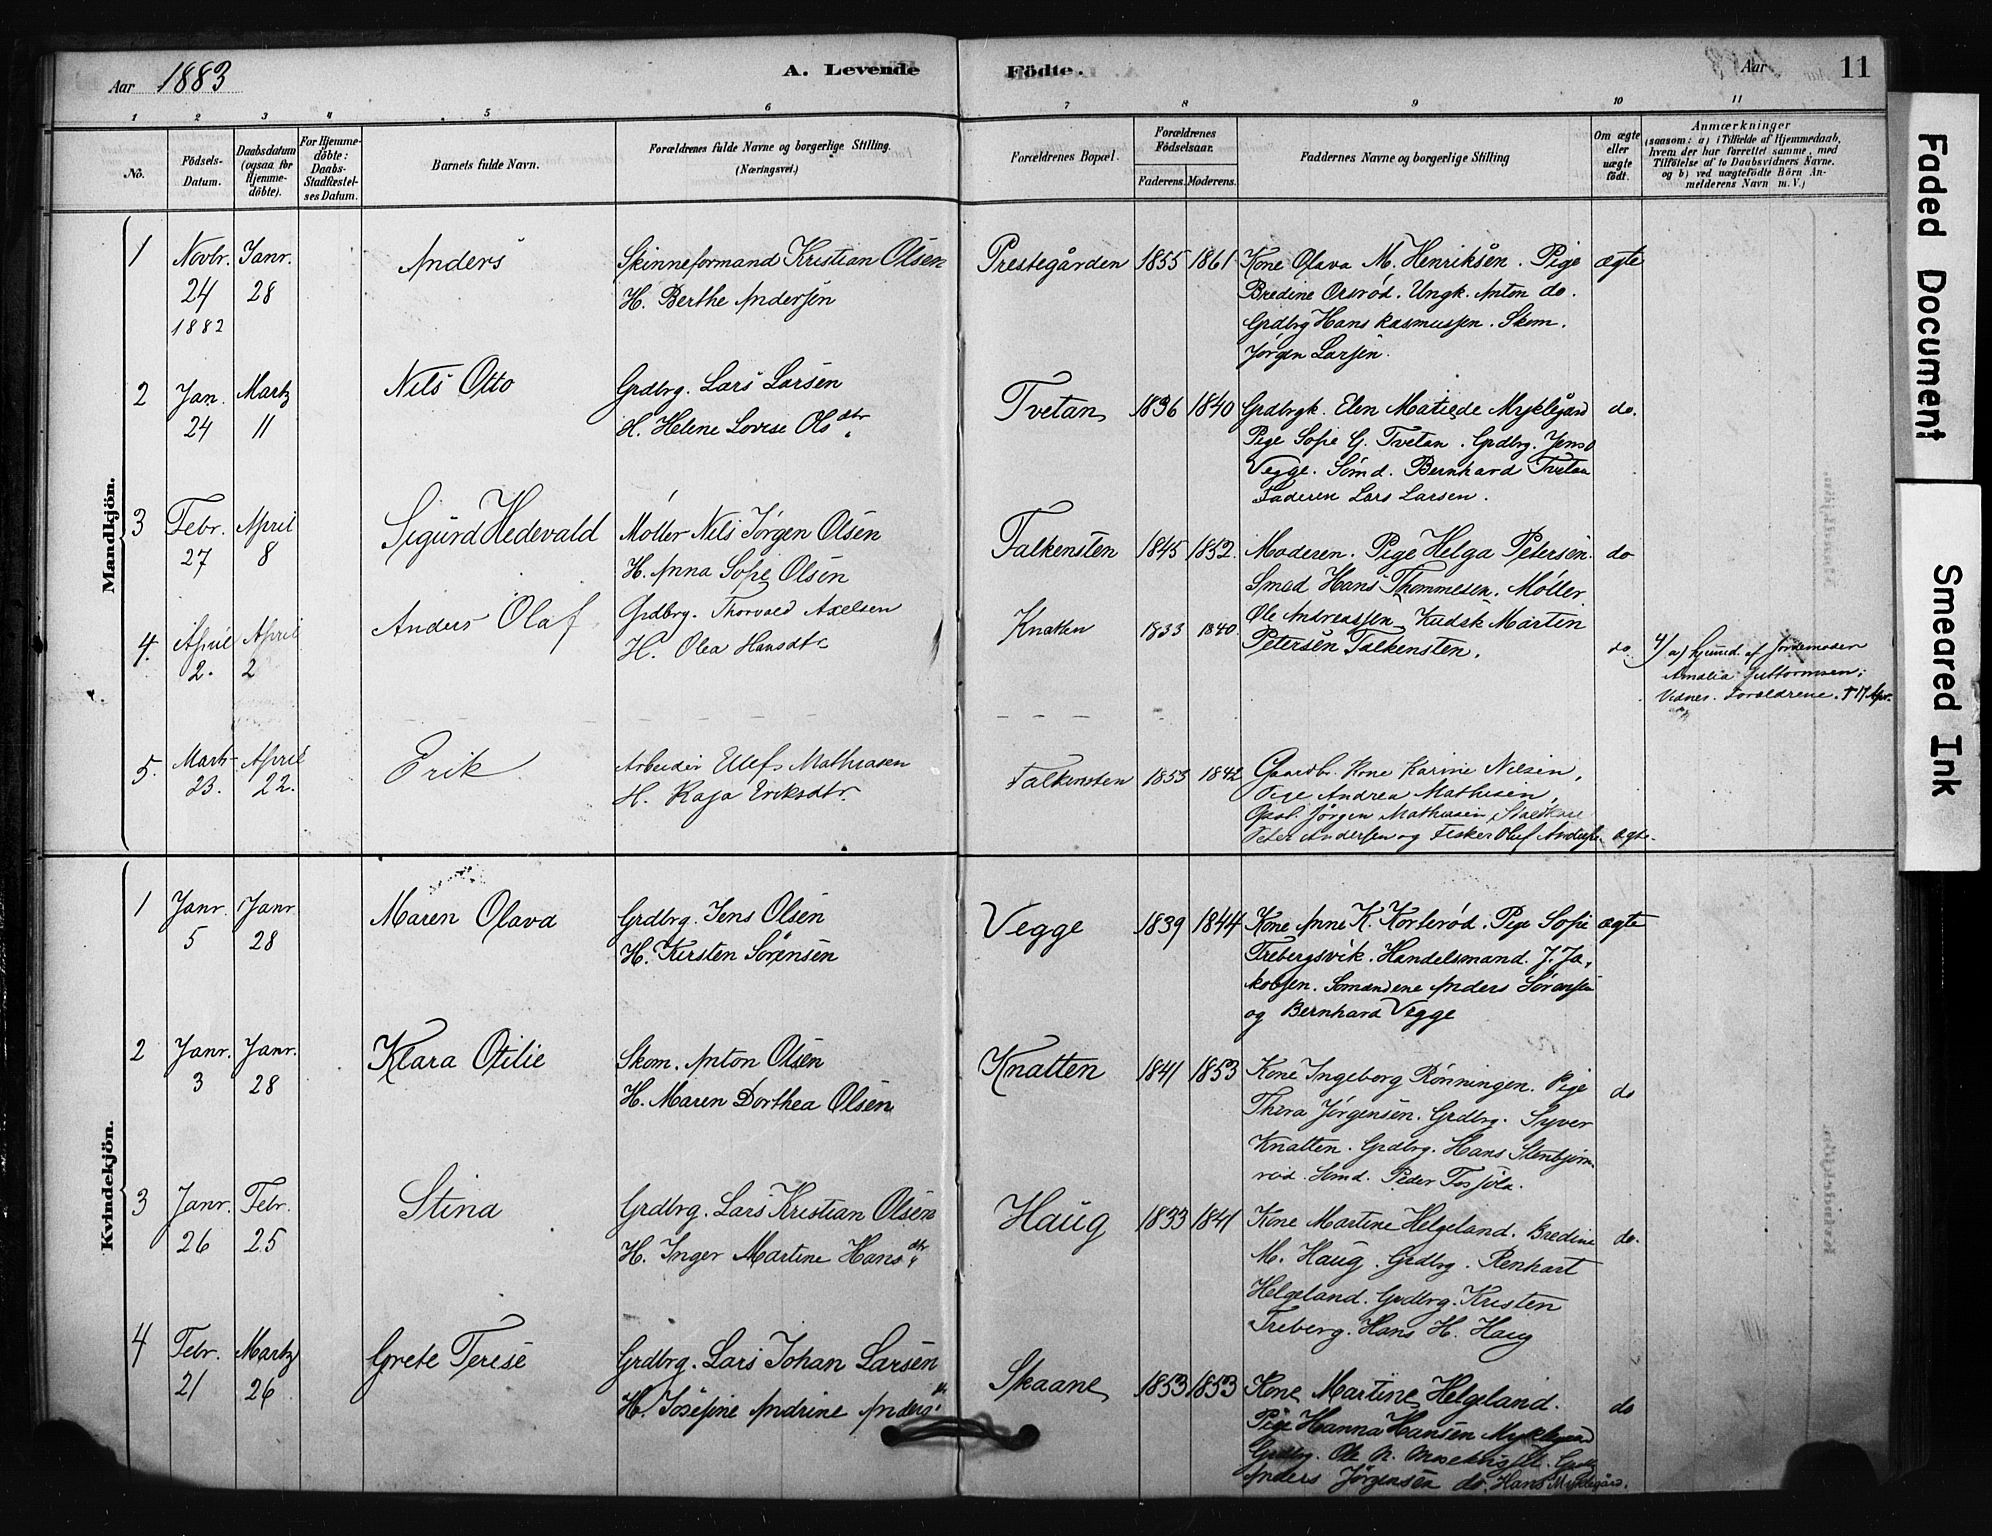 Aar 1883
A. Levende
Födte.
Aar
11
1 2 3 4 5 6 7 8 9 10 11
No.
Födsels-
Datum.
Daabsdatum
(ogsaa for
Hjemme-
döbte).
For Hjemme-
döbte:
Daabs-
Stadfæstel-
ses Datum.
Barnets fulde Navn.
Forældrenes fulde Navne og borgerlige Stilling.
(Næringsvei.)
Forældrenes Bopæl.
Forældrenes
Födselsaar.
Faderens. Moderens.
Faddernes Navne og borgerlige Stilling
Om ægte
eller
uægte
födt.
Anmærkninger
(saasom: a) i Tilfælde af Hjemmedaab,
hvem der har forrettet samme, med
Tilföielse af to Daabsvidners Navne.
og b) ved uægtefödte Börn An-
melderens Navn m. V.)
Mandkjön.
1 Novbr. Janr. Anders Skinneformand Kristian Olsen Prestegården 1855 1861 Kone Olava M. Henriksen. Pige ægte
24 28 H. Berthe Andersen Bredine Orerød. Ungk. Anton do.
1882 Grdbrg Hans Rasmussen. Skom.
Jørgen Larsen.
2 Jan. Martz Nils Otto Grdbrg. Lars Larsen Tvetan 1836 1840 Grdbrgk. Elen Matilde Myklegård do.
24 11 H. Helene Lovise Ols dtr Pige Sofie G. Tvetan. Grdbrg. Jens O
Vegge. Sømd. Bernhard Tvetan
Faderen Lars Larsen.
3 Febr. April Sigurd Hedevald Møller Nils Jørgen Olsen Falkensten 1845 1852. Moderen. Pige Helga Petersen. do
27 8 H. Anna Sofie Olsen Smed Hans Thommesen. Møller
Ole Andreassen Kudsk Martin
Petersen Falkensten.
4. April April Anders Olaf Grdbrg. Thorvald Axelsen Knatten 1833 1840. do 4/ a) hjemd. af Jordemoder
2. 2 H. Olea Hansdtr Amalia Guttormsen;
Vidner. Forældrene. † 17 Apr.
5. Marts April Erik Arbeider Ulef Mathiasen Falkensten 1853 1842 Gaardbr. Kone Karine Nilsen,
23. 22. H. Kaja Eriksdtr. Pige Andrea Mathisen,
Jørgen Mathiasen
Peter Andersen og Fisker Oluf Anders. ægte.
Kvindekjön.
1 Janr. Janr Maren Olava Grdbrg. Jens Olsen Vegge 1839 1844 Kone Anne K. Korterød. Pige Sofie ægte
5 28 H. Kirsten Sørensen Trebergsvik. Handelsmand J. Ja-
kobsen. Sømændene Anders Sørensen
og Bernhard Vegge
2 Janr. Janr. Klara Otilie Skom. Anton Olsen Knatten 1841 1853 Kone Ingeborg Rønningen. Pige do
3 28 H. Maren Dorthea Olsen Thora Jørgensen. Grdbrg. Syver
Knatten. Grdbrg. Hans Stenbjørn-
rød. Sømd. Peder
3 Janr. Febr. Stina Grdbrg. Lars Kristian Olsen Haug 1833 1841 Kone Martine Helgeland. Bredine do.
26 25 H. Inger Martine Hans dtr M. Haug. Grdbrg. Renhart
Helgeland. Grdbrg. Kristen
Treberg. Hans H. Haug
4 Febr. Martz Grete Terese Grdbrg. Lars Johan Larsen Skaane 1853 1853 Kone Martine Helgeland. do
21 26 H. Josefine Andrine Anders Pige Hanna Hansen Myklegård
Grdbrg. Ole N.
Anders Jørgensen do. Hans Myklegård.
Faded Document
Smeared Ink